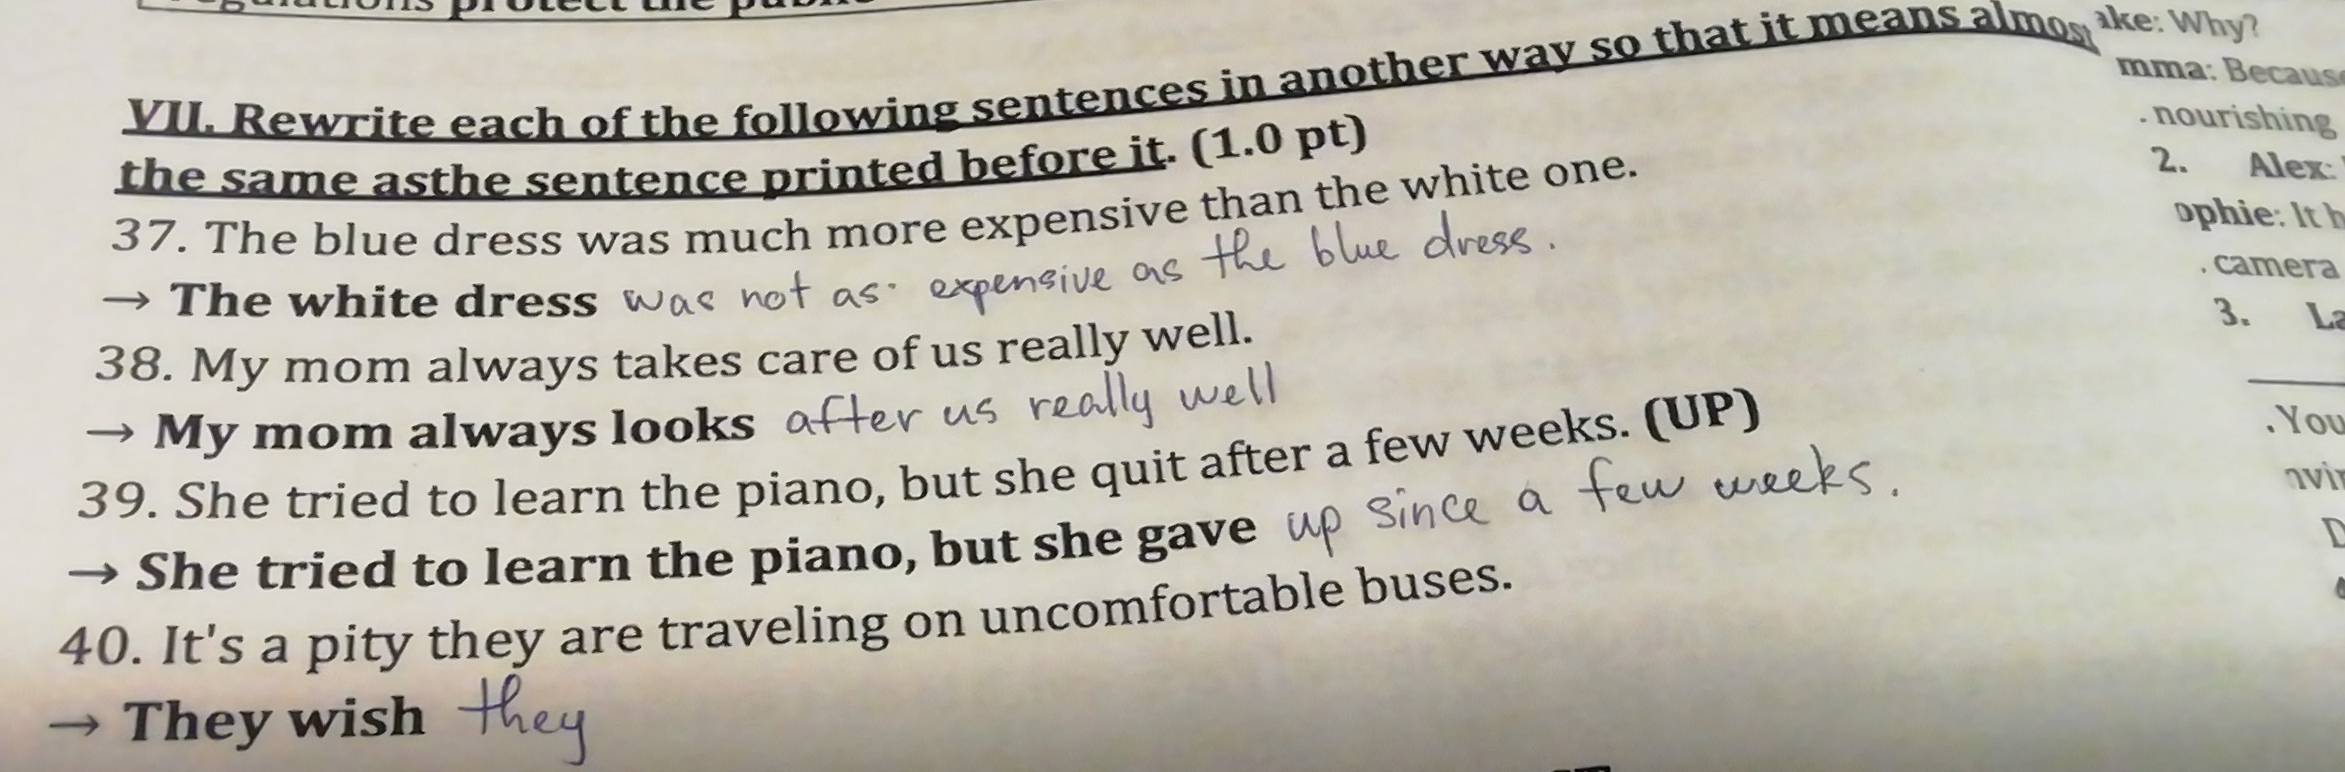 protect the
VII. Rewrite each of the following sentences in another way so that it means almost
the same asthe sentence printed before it. (1.0 pt)
37. The blue dress was much more expensive than the white one.
→ The white dress was not as expensive as the blue dress.
38. My mom always takes care of us really well.
→ My mom always looks after us really well
39. She tried to learn the piano, but she quit after a few weeks. (UP)
→ She tried to learn the piano, but she gave up since a few weeks.
40. It's a pity they are traveling on uncomfortable buses.
→ They wish they
ake: Why?
mma: Because
. nourishing
2. Alex:
ophie: It h
. camera
3. La
. You